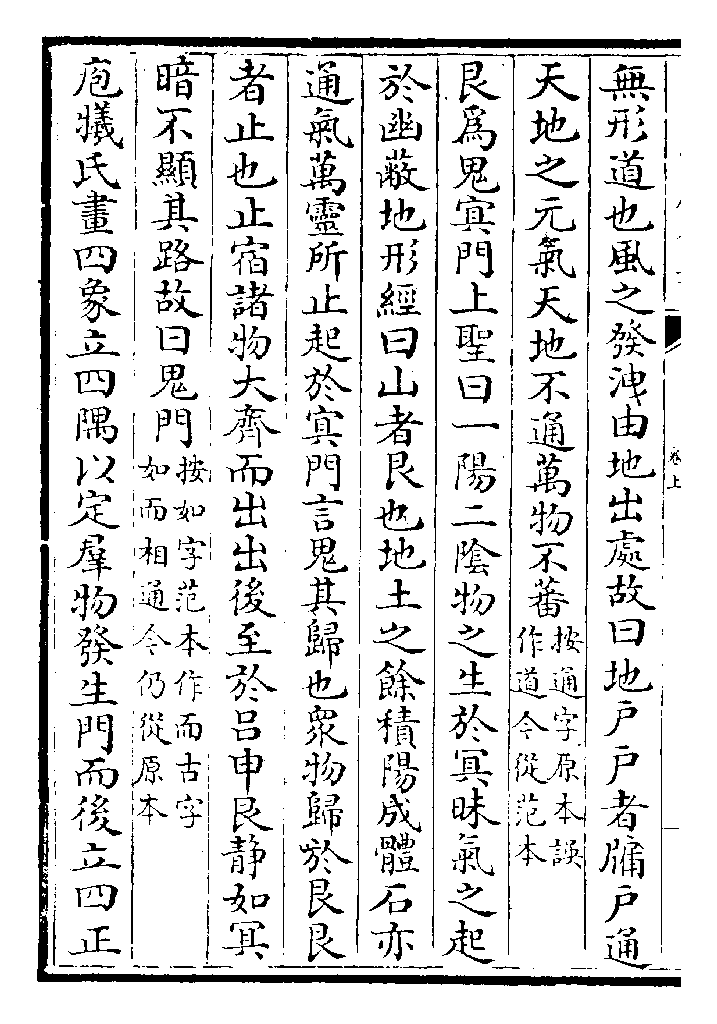 無形道也風之發洩由地出處故曰地戶戶者牖戶通
天地之元氣天地不通萬物不蕃按通字原本誤作道今從范本
艮爲鬼寘門上聖曰一陽二陰物之生於冥昧氣之起
於幽蔽地形經曰山者艮也地土之餘積陽成體石亦
通氣萬靈所止起於寘門言鬼其歸也眾物歸於艮艮
者止也止宿諸物大齊而出出後至於呂申艮静如冥
暗不顯其路故曰鬼門按如字范本作而古字如而相通今仍從原本
庖犧氏畫四象立四隅以定羣物發生門而後立四正
卷上